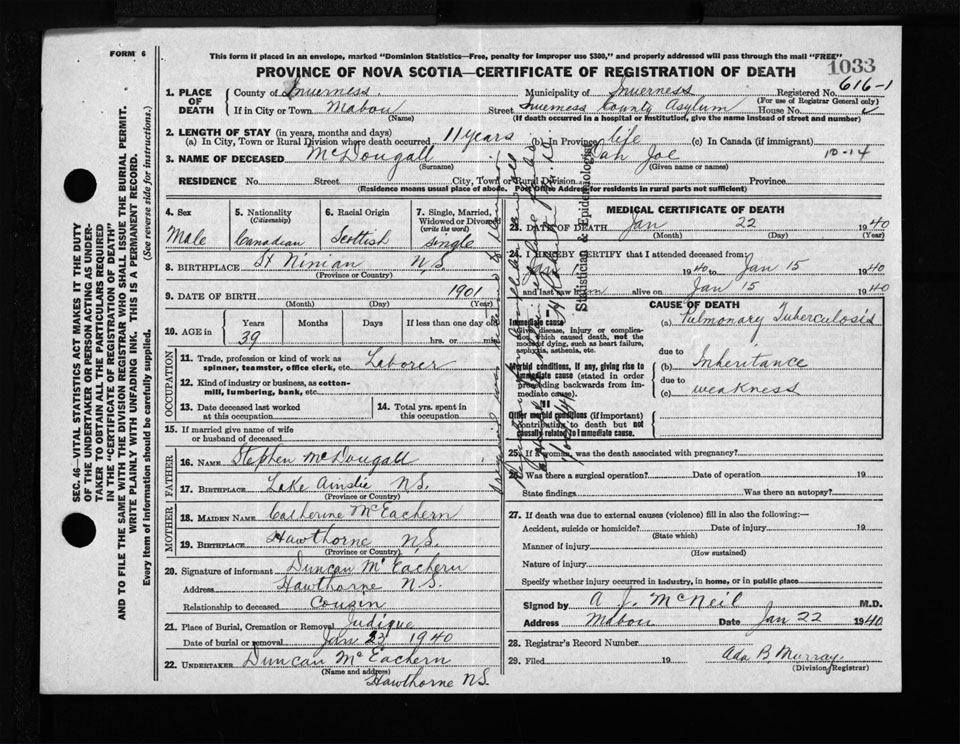 FORM 6
This form if placed in an envelope, marked "Dominion Statistics—Free, penalty for improper use $300," and properly addressed will pass through the mail "FREE"
1033
PROVINCE OF NOVA SCOTIA—CERTIFICATE OF REGISTRATION OF DEATH
616-1
1. PLACE OF DEATH County of Inverness. Municipality of Inverness Registered No.
(For use of Registrar General only)
If in City or Town Mabou Street Inverness County Asylum House No.
(Name) (If death occurred in a hospital or institution, give the name instead of street and number)
2. LENGTH OF STAY (in years, months and days)
(a) In City, Town or Rural Division where Death occurred 11 years (b) In Province life (c) In Canada (if immigrant)
3. NAME OF DECEASED McDougall Dan Joe 10-14
(Surname) (Given name or names)
RESIDENCE No. Street City, Town or Rural Division Province
(Residence means usual place of abode. Post Office Address for residents in rural parts not sufficient)
4. Sex Male
5. Nationality (Citizenship) Canadian
6. Racial Origin Scottish
7. Single, Married, Widowed or Divorced (write the word) single
8. BIRTHPLACE St Ninian N.S.
(Province or Country)
9. DATE OF BIRTH 1901
(Month) (Day) (Year)
10. AGE in Years Months Days If less than one day old
39 hrs. or min.
OCCUPATION
11. Trade, profession or kind of work as spinner, teamster, office clerk, etc. Laborer
12. Kind of industry or business, as cotton-mill, lumbering, bank, etc.
13. Date deceased last worked at this occupation
14. Total yrs. spent in this occupation
15. If married give name of wife or husband of deceased
FATHER
16. NAME Stephen McDougall
17. BIRTHPLACE Lake Ainslie N.S.
(Province or Country)
MOTHER
18. MAIDEN NAME Catherine McEachern
19. BIRTHPLACE Hawthorne N.S.
(Province or Country)
20. Signature of informant Duncan McEachern
Address Hawthorne N.S.
Relationship to deceased Cousin
21. Place of Burial, Cremation or Removal Judique
Date of burial or removal Jan 23 1940
22. UNDERTAKER Duncan McEachern
(Name and address)
Hawthorne N.S.
MEDICAL CERTIFICATE OF DEATH
23. DATE OF DEATH Jan 22 1940
(Month) (Day) (Year)
24. I HEREBY CERTIFY that I attended deceased from
Jan 1 1940 to Jan 15 1940
and last saw him alive on Jan 15 1940
CAUSE OF DEATH
Immediate cause
Give disease, injury or complication which caused death, not the mode of dying, such as heart failure, asphyxia, asthenia, etc.
(a) Pulmonary Tuberculosis
due to
Morbid conditions, if any, giving rise to immediate cause (stated in order proceeding backwards from immediate cause).
(b) Inheritance
due to
(c) weakness
II
Other morbid conditions (if important) contributing to death but not causally related to immediate cause.
25. If a woman, was the death associated with pregnancy?
26. Was there a surgical operation? Date of operation 19
State findings Was there an autopsy?
27. If death was due to external causes (violence) fill in also the following:—
Accident, suicide or homicide? Date of injury 19
(State which)
Manner of injury
(How sustained)
Nature of injury
Specify whether injury occurred in industry, in home, or in public place
Signed by A J. McNeil M.D.
Address Mabou Date Jan 22 1940
28. Registrar's Record Number
29. Filed 19 Ada B. Murray
(Division Registrar)
Statistician & Epidemiologist
SEC. 46—VITAL STATISTICS ACT MAKES IT THE DUTY OF THE UNDERTAKER OR PERSON ACTING AS UNDERTAKER TO OBTAIN ALL THE PARTICULARS REQUIRED IN THE "CERTIFICATE OF REGISTRATION OF DEATH"
AND TO FILE THE SAME WITH THE DIVISION REGISTRAR WHO SHALL ISSUE THE BURIAL PERMIT.
WRITE PLAINLY WITH UNFADING INK. THIS IS A PERMANENT RECORD.
Every item of information should be carefully supplied. (See reverse side for instructions.)